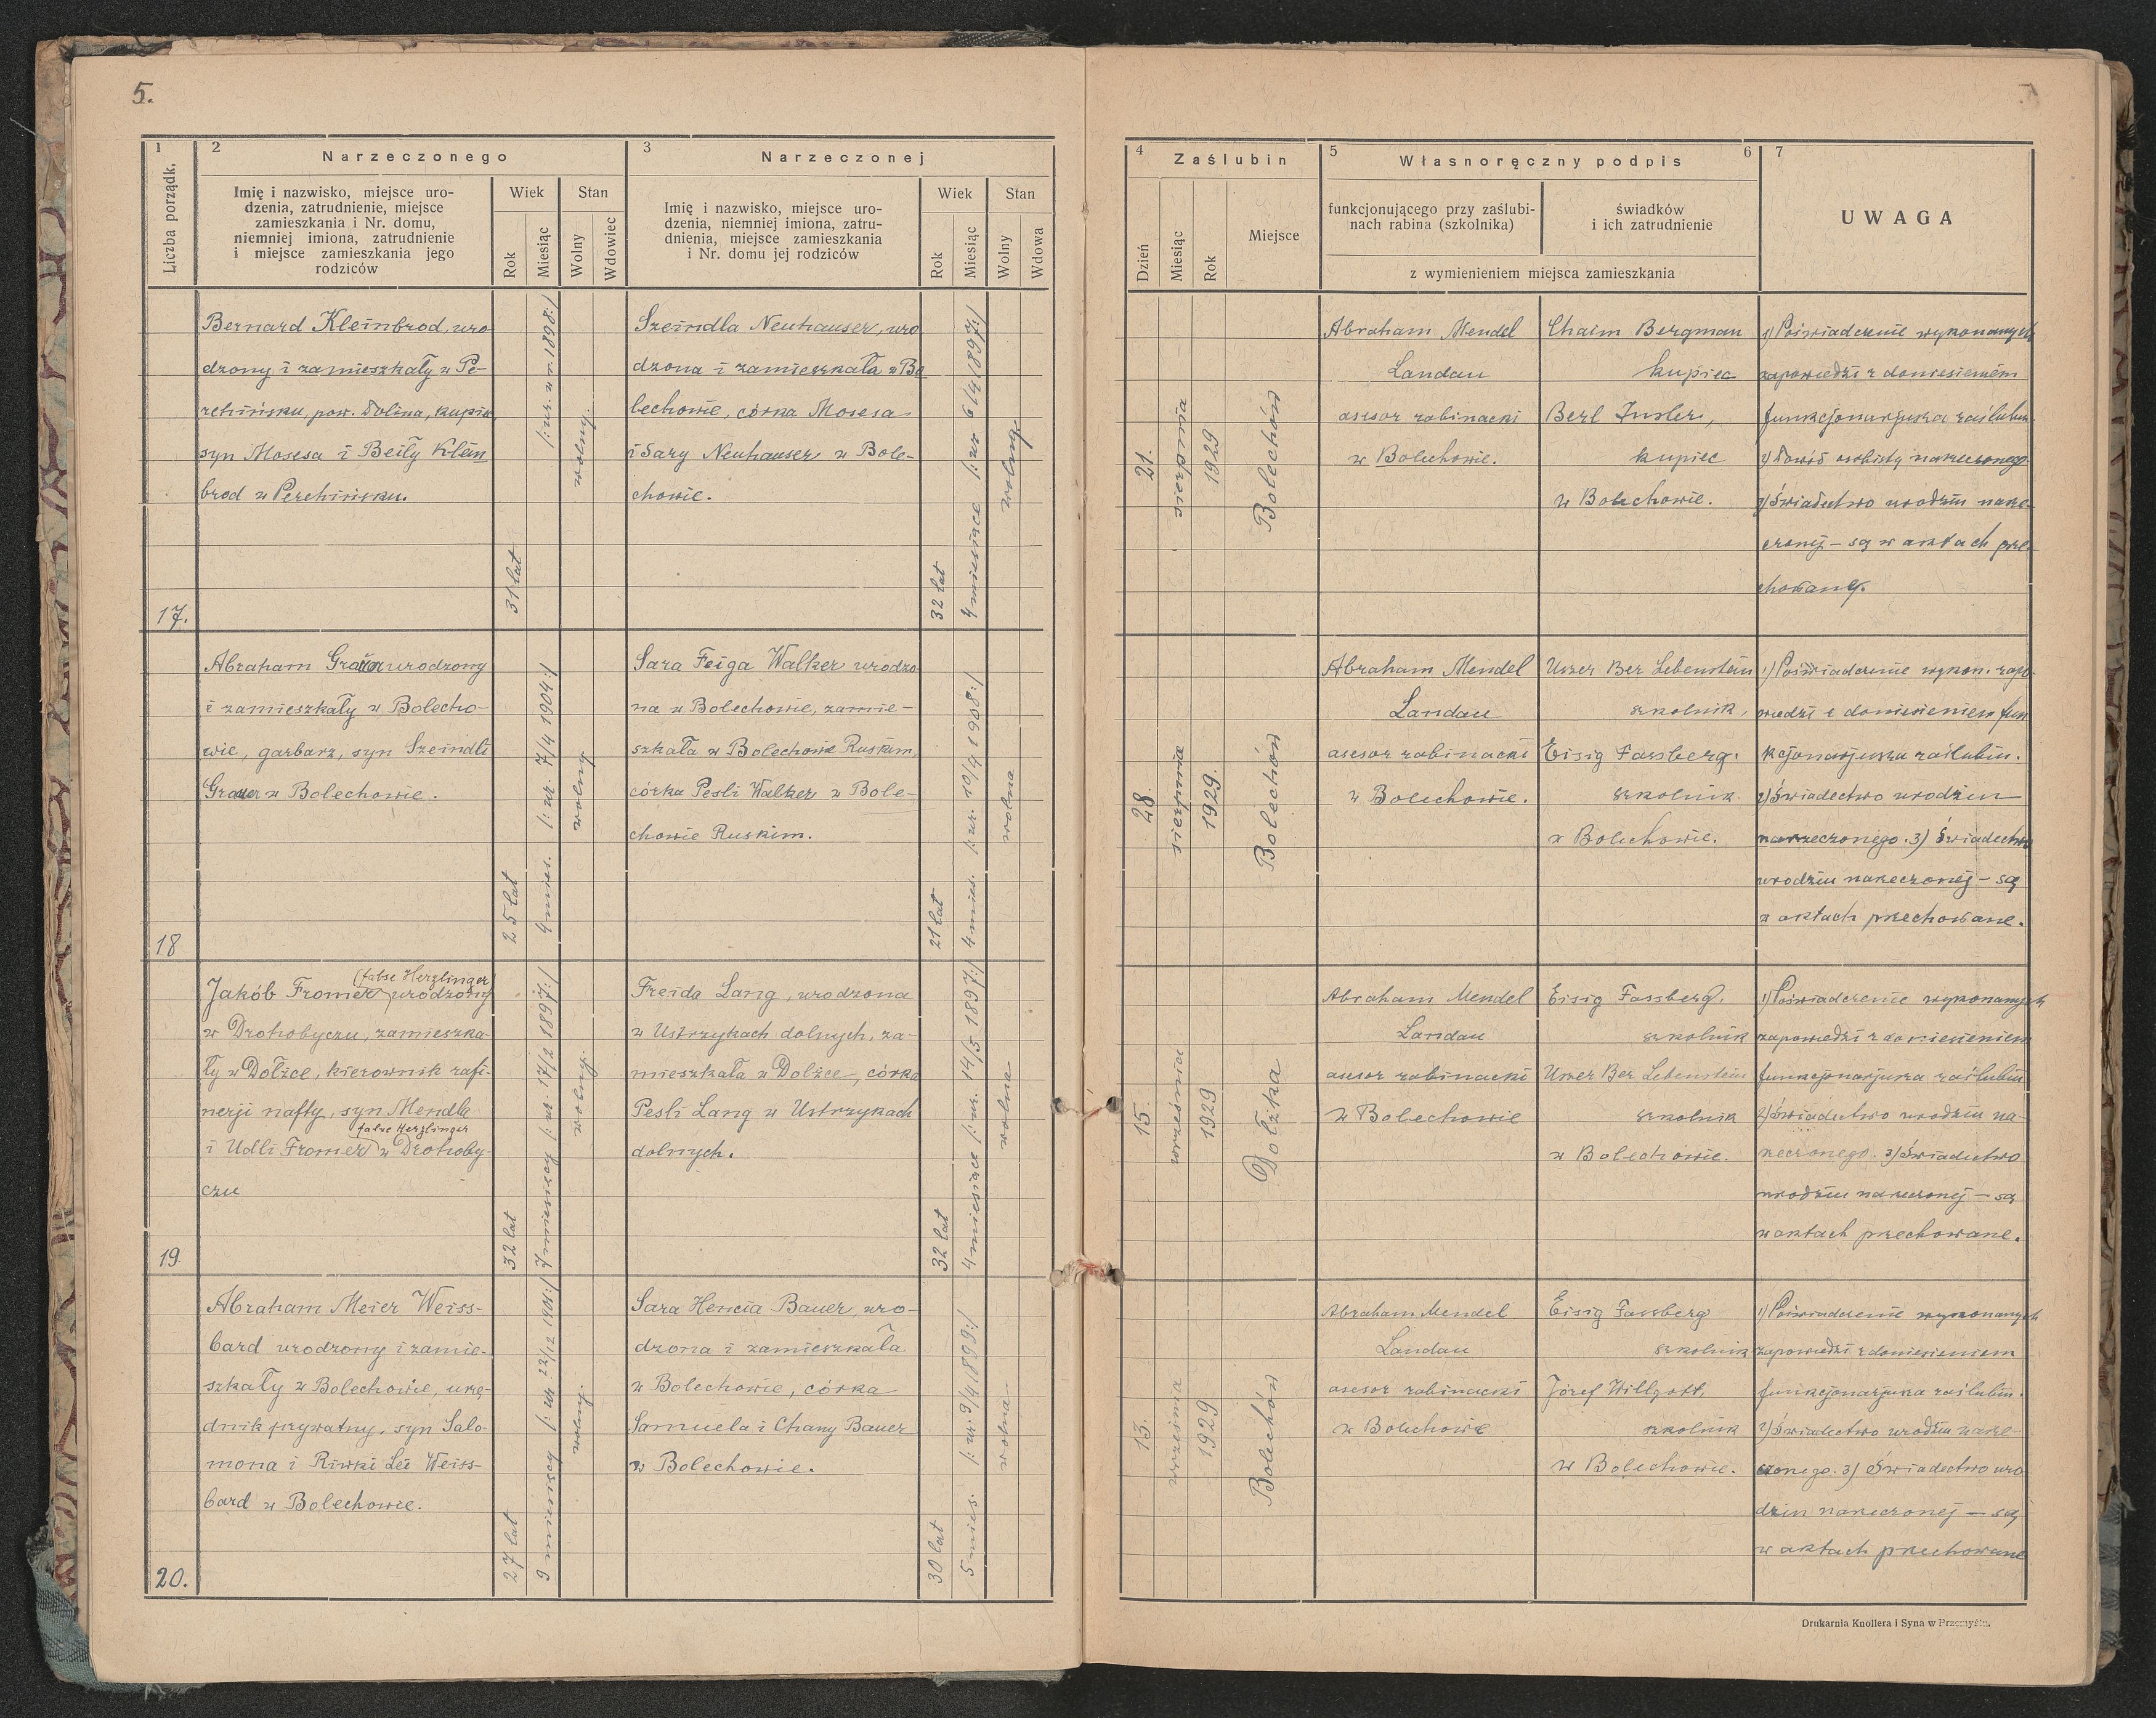 5.
1
Liczba porządk.
2
Narzeczonego
Imię i nazwisko, miejsce uro-
dzenia, zatrudnienie, miejsce
zamieszkania i Nr. domu,
niemniej imiona, zatrudnienie
i miejsce zamieszkania jego
rodziców
Wiek
Rok
Miesiąc
Stan
Wolny
Wdowiec
3
Narzeczonej
Imię i nazwisko, miejsce uro-
dzenia, niemniej imiona, zatru-
dnienia, miejsce zamieszkania
i Nr. domu jej rodziców
Wiek
Rok
Miesiąc
Stan
Wolny
Wdowa
4
Zaślubin
Dzień
Miesiąc
Rok
Miejsce
5
Własnoręczny podpis
6
funkcjonującego przy zaślubi-
nach rabina (szkolnika)
świadków
i ich zatrudnienie
z wymienieniem miejsca zamieszkania
7
UWAGA
17.
Bernard Kleinbrod, uro-
dzony i zamieszkały w Pe-
rehińsku, pow. Dolina, kupiec,
syn Mosesa i Beily Klein
brod w Perehińsku.
31 lat
/: ur. w r. 1898:/
wolny.
Szeindla Neuhauser, uro
dzona i zamieszkała w Bo
lechowie, córka Mosesa
i Sary Neuhauser w Bole-
chowie.
32 lat
4 miesiące /: ur 6/4 1897:/
wolna
21.
sierpnia
1929
Bolechów
Abraham Mendel
Landau
asesor rabinacki
w Bolechowie.
Chaim Bergman
kupiec
Berl Insler,
kupiec
w Bolechowie.
1) Poświadczenie wykonanych
zapowiedzi z doniesieniem
funkcjonarjusza zaślubin.
2) Dowód osobisty narzeczonego
3) Świadectwo urodzin narze-
czonej – są w aktach prze-
chowane.
18
Abraham Grauer urodzony
i zamieszkały w Bolecho-
wie, garbarz, syn Szeindli
Grauer w Bolechowie.
25 lat
4 mies. /: ur. 7/4 1904:/
wolny
Sara Feiga Walker urodzo
na w Bolechowie, zamie-
szkała w Bolechowie Ruskim,
córka Pesli Walker w Bole-
chowie Ruskim.
21 lat
4 mies. /: ur. 10/4 1908:/
wolna
28.
sierpnia
1929.
Bolechów
Abraham Mendel
Landau
asesor rabinacki
w Bolechowie.
Uszer Ber Lebenstein
szkolnik,
Eisig Fassberg.
szkolnik
w Bolechowie.
1) Poświadczenie wykon. zapo-
wiedzi z doniesieniem fun
kcjonarjusza zaślubin.
2) Świadectwo urodzin
narzeczonego. 3) Świadectwo
urodzin narzeczonej – są
w aktach przechowane.
19.
(false Herzlinger)
Jakób Fromer urodzony
w Drohobyczu, zamieszka-
ły w Dolżce, kierownik rafi-
nerji nafty, syn Mendla
false Herzlinger
i Udli Fromer w Drohoby-
czu
32 lat
7 miesięcy /: ur. 17/2 1897:/
wolny.
Freida Lang, urodzona
w Ustrzykach dolnych, za-
mieszkała w Dolżce, córka
Pesli Lang w Ustrzykach
dolnych.
32 lat
4 miesiące /: ur. 14/5 1897:/
wolna
15.
września
1929
Dolżka
Abraham Mendel
Landau
asesor rabinacki
w Bolechowie
Eisig Fassberg,
szkolnik
Uszer Ber Lebenstein
szkolnik
w Bolechowie.
1) Poświadczenie wykonanych
zapowiedzi z doniesieniem
funkcjonarjusza zaślubin
2) Świadectwo urodzin na-
rzeczonego. 3) Świadectwo
urodzin narzeczonej – są
w aktach przechowane.
20.
Abraham Meier Weiss-
bard urodzony i zamie-
szkały w Bolechowie, urzę-
dnik prywatny, syn Salo-
mona i Riwki Lei Weiss-
bard w Bolechowie.
27 lat
9 miesięcy /: ur 22/12 1901:/
wolny.
Sara Hencia Bauer, uro-
dzona i zamieszkała
w Bolechowie, córka
Samuela i Chany Bauer
w Bolechowie.
30 lat
5 mies. /: ur. 9/4 1899:/
wolna
13.
września
1929
Bolechów
Abraham Mendel
Landau
asesor rabinacki
w Bolechowie
Eisig Fassberg
szkolnik
Józef Willgott,
szkolnik
w Bolechowie.
1) Poświadczenie wykonanych
zapowiedzi z doniesieniem
funkcjonarjusza zaślubin.
2) Świadectwo urodzin narze-
czonego. 3) Świadectwo uro
dzin narzeczonej – są
w aktach przechowane
Drukarnia Knollera i Syna w Przemyślu.